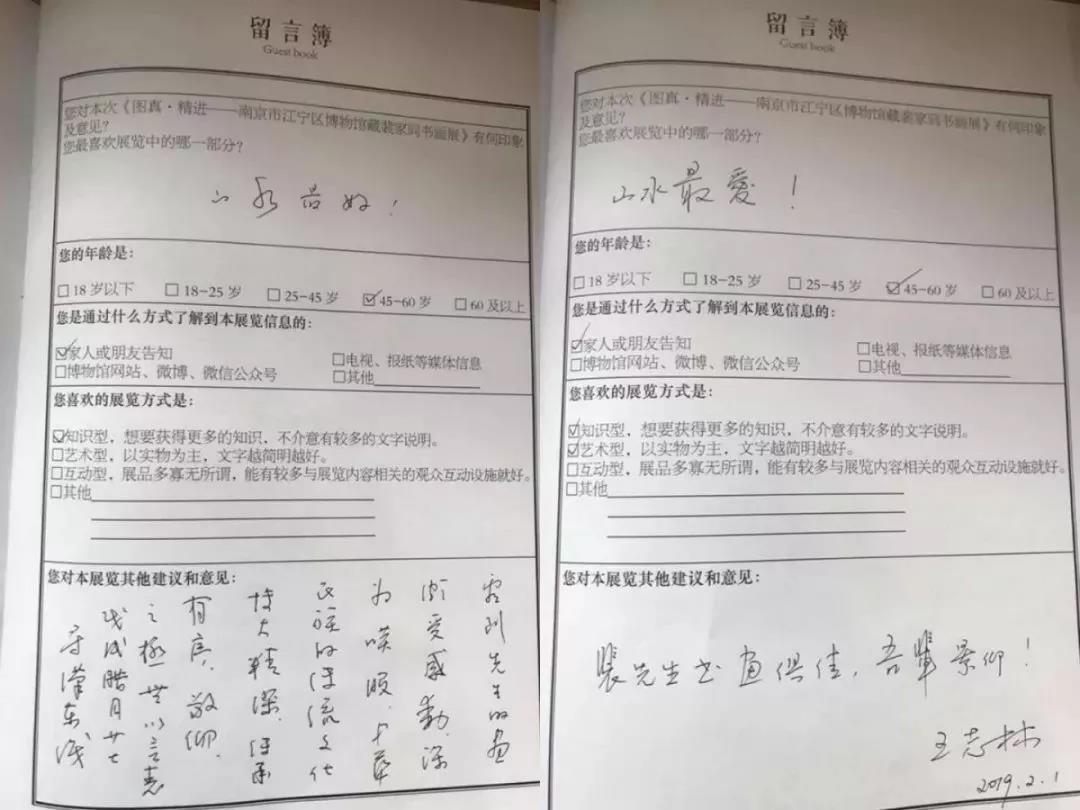 留言簿
Guest book
您对本次《图真·精进——南京市江宁区博物馆藏裴家同书画展》有何印象
及意见?
您最喜欢展览中的哪一部分?
山水最好!
您的年龄是:
□18岁以下 □18-25岁 □25-45岁 ☑45-60岁 □60及以上
您是通过什么方式了解到本展览信息的:
☑家人或朋友告知 □电视、报纸等媒体信息
□博物馆网站、微博、微信公众号 □其他
您喜欢的展览方式是:
☑知识型,想要获得更多的知识,不介意有较多的文字说明。
□艺术型,以实物为主,文字越简明越好。
□互动型,展品多寡无所谓,能有较多与展览内容相关的观众互动设施就好。
□其他
您对本展览其他建议和意见:
看到先生的画
颇受感動,深
为嘆服,中華
民族的传统文化
博大精深,传承
有序,敬仰
之極 無以言表
戊戌腊月廿七
留言簿
Guest book
您对本次《图真·精进——南京市江宁区博物馆藏裴家同书画展》有何印象
及意见?
您最喜欢展览中的哪一部分?
山水最愛!
您的年龄是:
□18岁以下 □18-25岁 □25-45岁 ☑45-60岁 □60及以上
您是通过什么方式了解到本展览信息的:
☑家人或朋友告知 □电视、报纸等媒体信息
□博物馆网站、微博、微信公众号 □其他
您喜欢的展览方式是:
☑知识型,想要获得更多的知识,不介意有较多的文字说明。
☑艺术型,以实物为主,文字越简明越好。
□互动型,展品多寡无所谓,能有较多与展览内容相关的观众互动设施就好。
□其他
您对本展览其他建议和意见:
裴先生书画俱佳,吾輩景仰!
王志林
2019.2.1